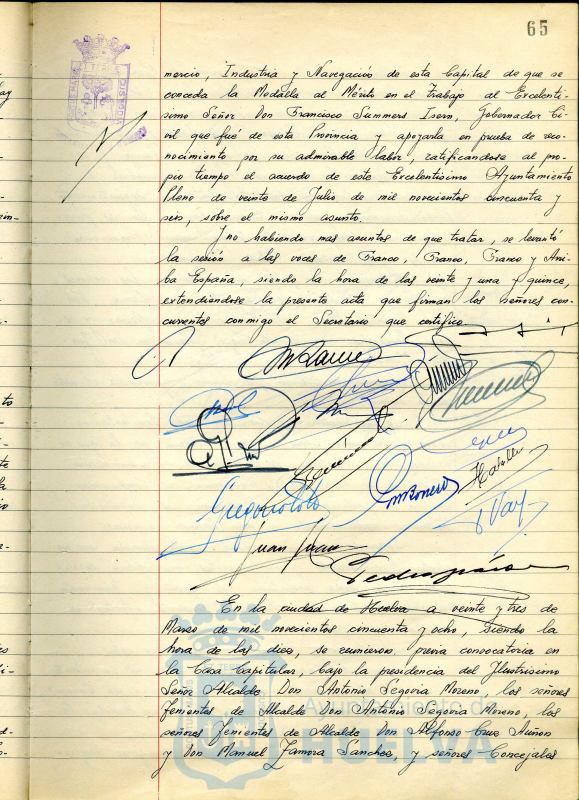 65
mercio, Industria y Navegación de esta Capital de que se
conceda la Medalla al Mérito en el trabajo al Excelentí-
simo Señor Don Francisco Summers Isern, Gobernador Ci-
vil que fué de esta Provincia y apoyarla en prueba de reco-
nocimiento por su admirable labor, ratificandose al pro-
pio tiempo el acuerdo de este Excelentísimo Ayuntamiento
Pleno de veinte de Julio de mil novecientos cincuenta y
seis, sobre el mismo asunto.
Y no habiendo mas asuntos de que tratar, se levantó
la sesión a las voces de Franco, Franco, Franco y Arri-
ba España, siendo la hora de las veinte y una y quince,
extendiendose la presente acta que firman los señores con-
currentes conmigo el Secretario que certifico.
Gregorio
Juan
En la ciudad de Huelva a veinte y tres de
Marzo de mil novecientos cincuenta y ocho, siendo la
hora de las diez, se reunieron, previa convocatoria en
la Casa Capitular, bajo la presidencia del Ilustrísimo
Señor Alcalde Don Antonio Segovia Moreno, los señores
Tenientes de Alcalde Don Antonio Segovia Moreno, los
señores Tenientes de Alcalde Don Alfonso Cruz
y Don Manuel Zamora Sanchez, y señores Concejales
Ayuntamiento de
HUELVA